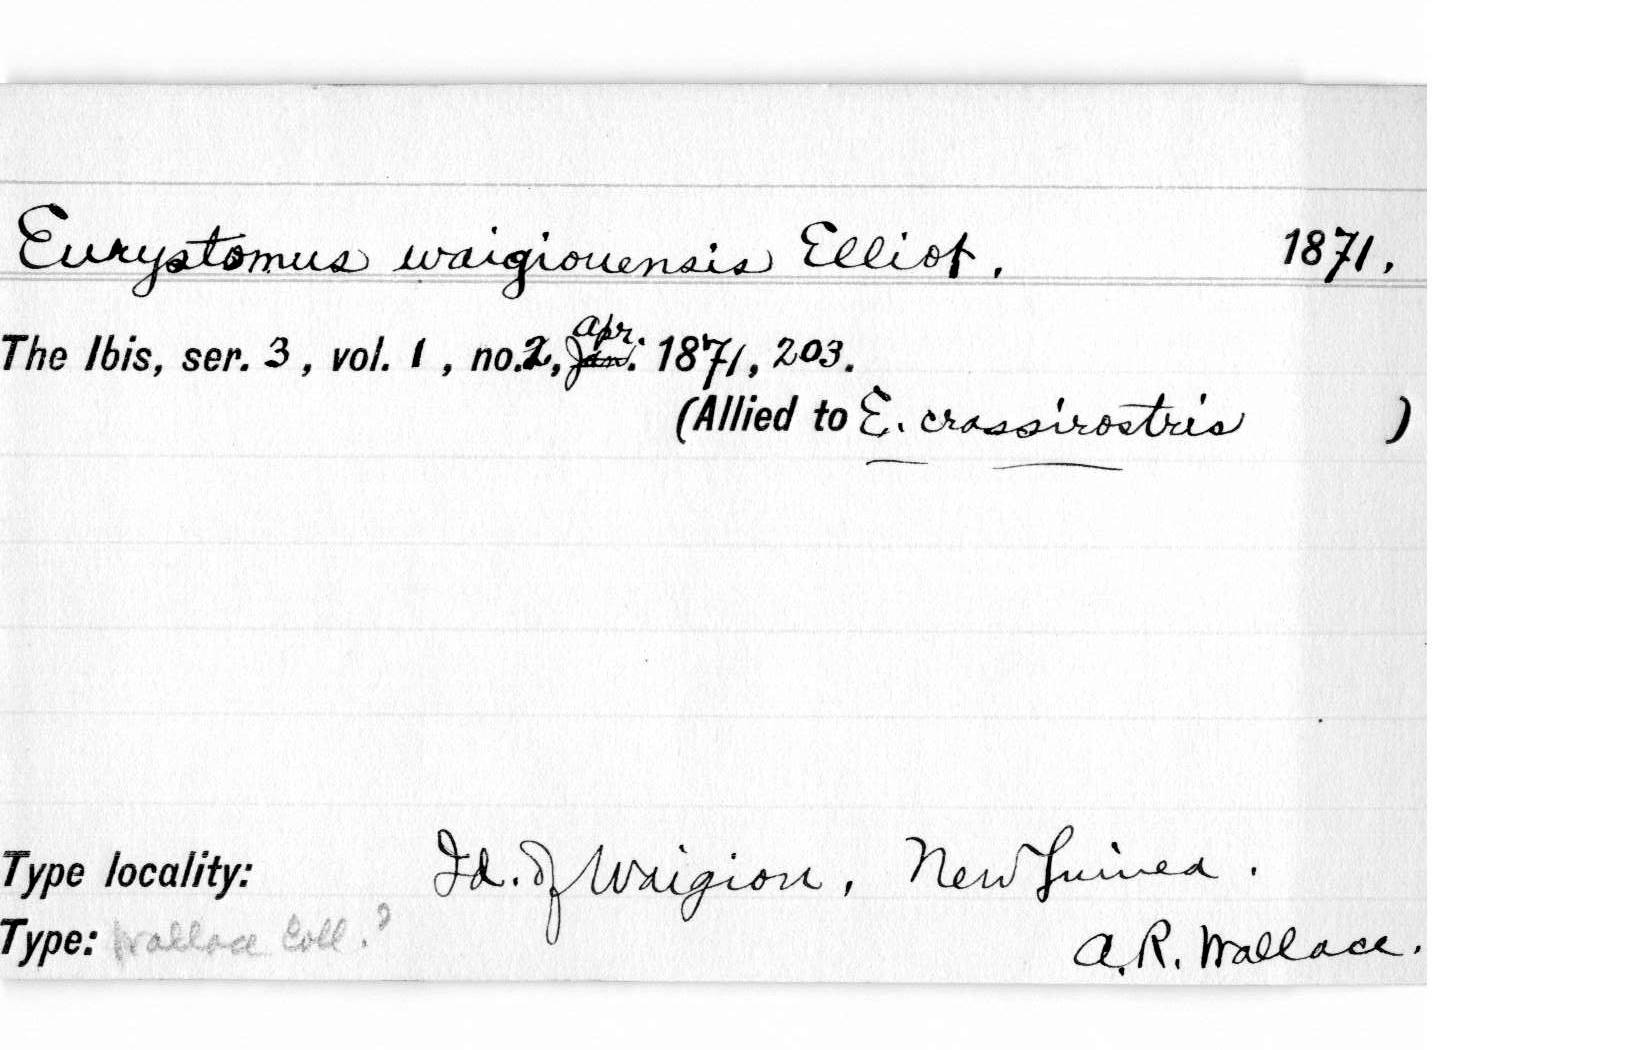 Eurystomus waigiouensis Elliot. 1871.
The Ibis, ser. 3, vol. 1, no. 2, Jan. Apr. 1871, 203.
(Allied to E. crassirostris )
Type locality: Id. of Waigiou, New Guinea.
Type: Wallace Coll.? A. R. Wallace.